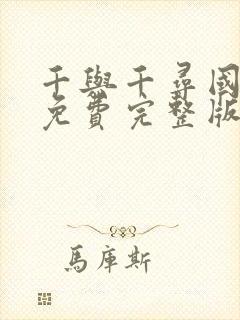 千與千尋國
免費完整版
馬庫斯